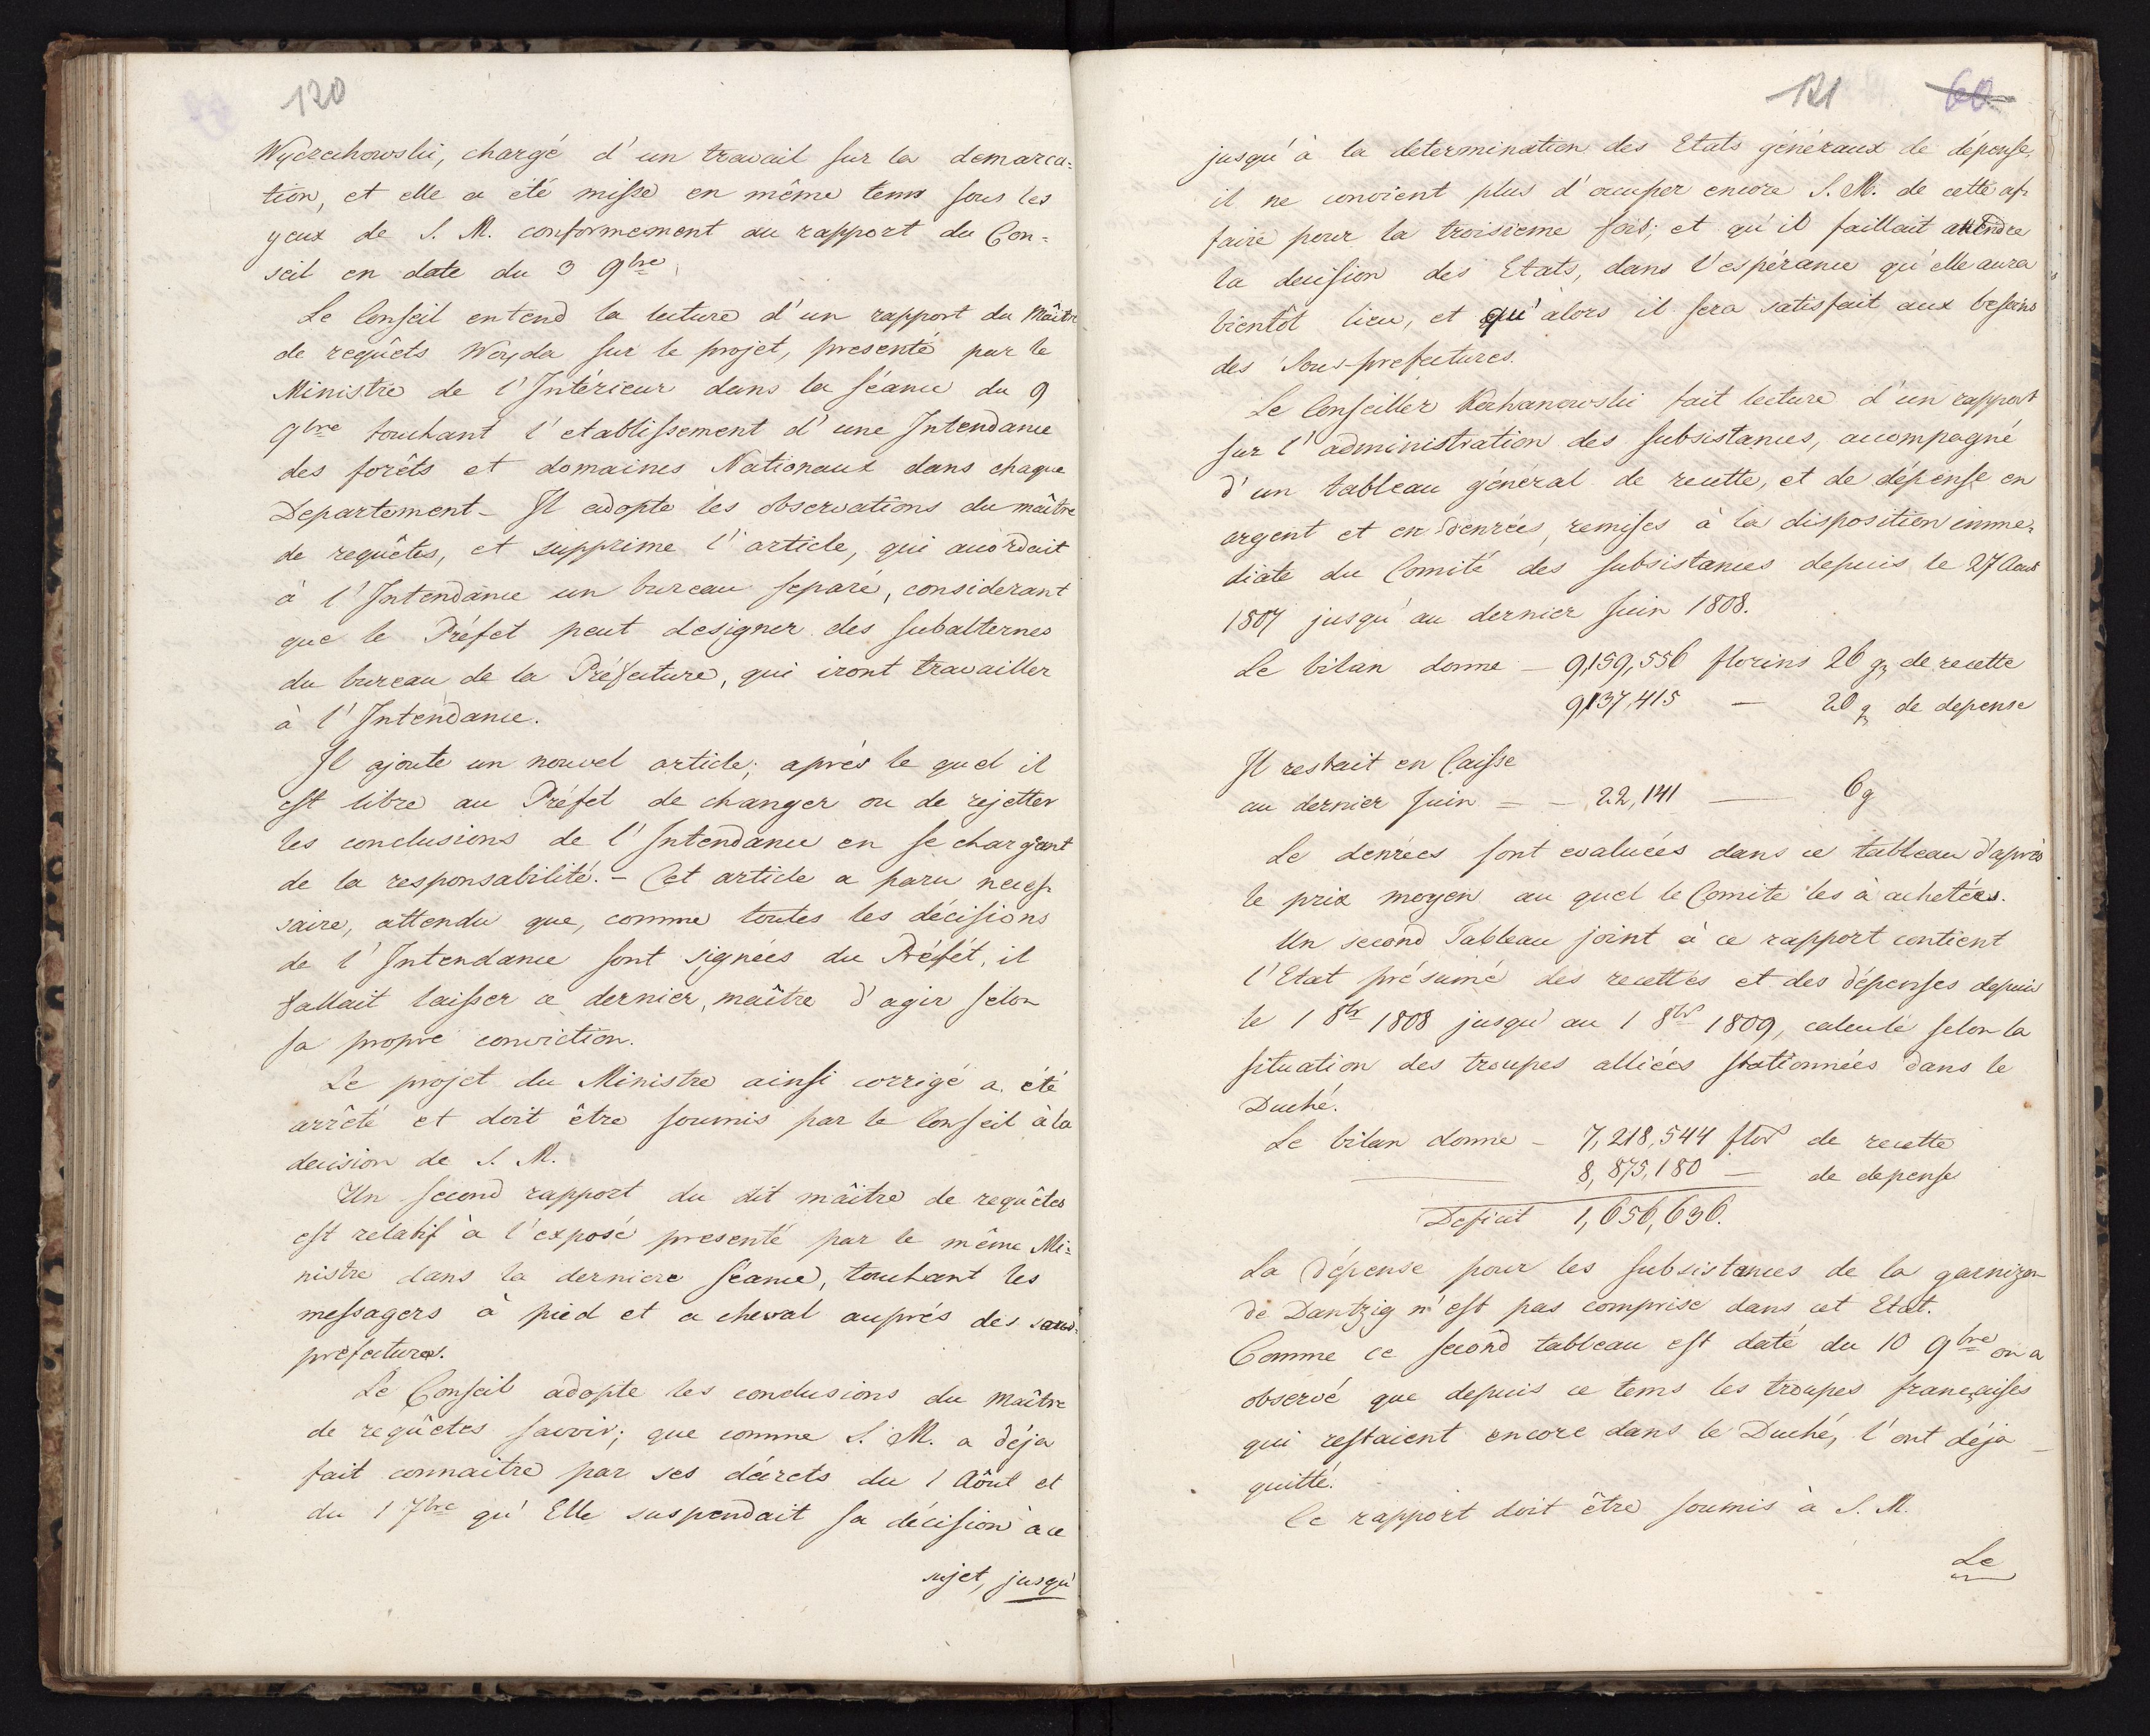 120
Wyczechowski, chargé d'un travail sur la demarca-
tion, et elle a été misse en même tems sous les
yeux de S. M. conformement au rapport du Con-
seil en date du 3 9bre.
Le Conseil entend la lecture d'un rapport du Maître
de requêts Woyda sur le projet, presenté par le
Ministre de l'Intérieur dans la séance du 9
9bre touchant l'etablissement d'une Intendance
des forêts et domaines Nationaux dans chaque
Departement - Il adopte les observations du maître
de requêtes, et supprime l'article, qui accordait
à l'Intendance un bureau separé, considerant
que le Préfet peut designer des subalternes
du bureau de la Préfecture, qui iront travailler
à l'Intendance.
Il ajoute un nouvel article; après le quel il
est libre au Préfet de changer ou de rejetter
les conclusions de l'Intendance en se chargeant
de la responsabilité. - Cet article a paru neces-
saire, attendu que, comme toutes les décisions
de l'Intendance sont signées du Préfét, il
fallait laisser ce dernier, maître d'agir sélon
sa propre conviction.
Le projet du Ministre ainsi corrigé a été
arrêté et doit être soumis par le Conseil à la
decision de S. M.
Un second rapport du dit maître de requêtes
est relatif à l'exposé presenté par le même Mi-
nistre dans la derniere séance, touchant les
messagers à pied et a cheval auprés des sous-
préfectures.
Le Conseil adopte les conclusions du Maître
de requêtes savoir; que comme S. M. a déja
fait connaitre par ses décrets du 1 Aôut et
du 1 7bre qu'Elle suspendait sa décision à ce
sujet, jusqu'
121 60
jusqu'à la determination des Etats généraux de dépense,
il ne convient plus d'occuper encore S. M. de cette af-
faire pour la troisieme fois; et qu'il faillait attendre
la decision des Etats, dans l'espérance qu'elle aura
bientôt lieu, et qu'alors il sera satisfait aux besoins
des Sous-prefectures.
Le Conseiller Kochanowski fait lecture d'un rapport
sur l'administration des subsistances, accompagné
d'un tableau général de recette, et de dépense en
argent et en denrées, remises à la disposition imme-
diate du Comité des subsistances depuis le 27 Aout
1807 jusqu'au dernier Juin 1808.
Le bilan donne - 9,159,556 florins 26 g de recette
9,137,415 - 20 g de depense
Il restait en Caisse
au dernier Juin = - 22,141 - 6 g
Le denrées sont evaluées dans ce tableau d'après
le prix moyen au quel le Comite les à achetées.
Un second Tableau joint à ce rapport contient
l'Etat présumé des recettes et des dépenses depuis
le 1 8br 1808 jusqu'au 1 8br 1809, calculé selon la
situation des troupes alliées stationnées dans le
Duché.
Le bilan donne - 7,218,544 flor de recette
8,875,180 - de depense
Deficit 1,656,636.
La dépense pour les subsistances de la garnizon
de Dantzig n'est pas comprise dans cet Etat.
Comme ce second tableau est daté du 10 9bre on a
observé que depuis ce tems les troupes françaises
qui restaient encore dans le Duché, l'ont déja
quitté.
Ce rapport doit être soumis à S. M.
Le